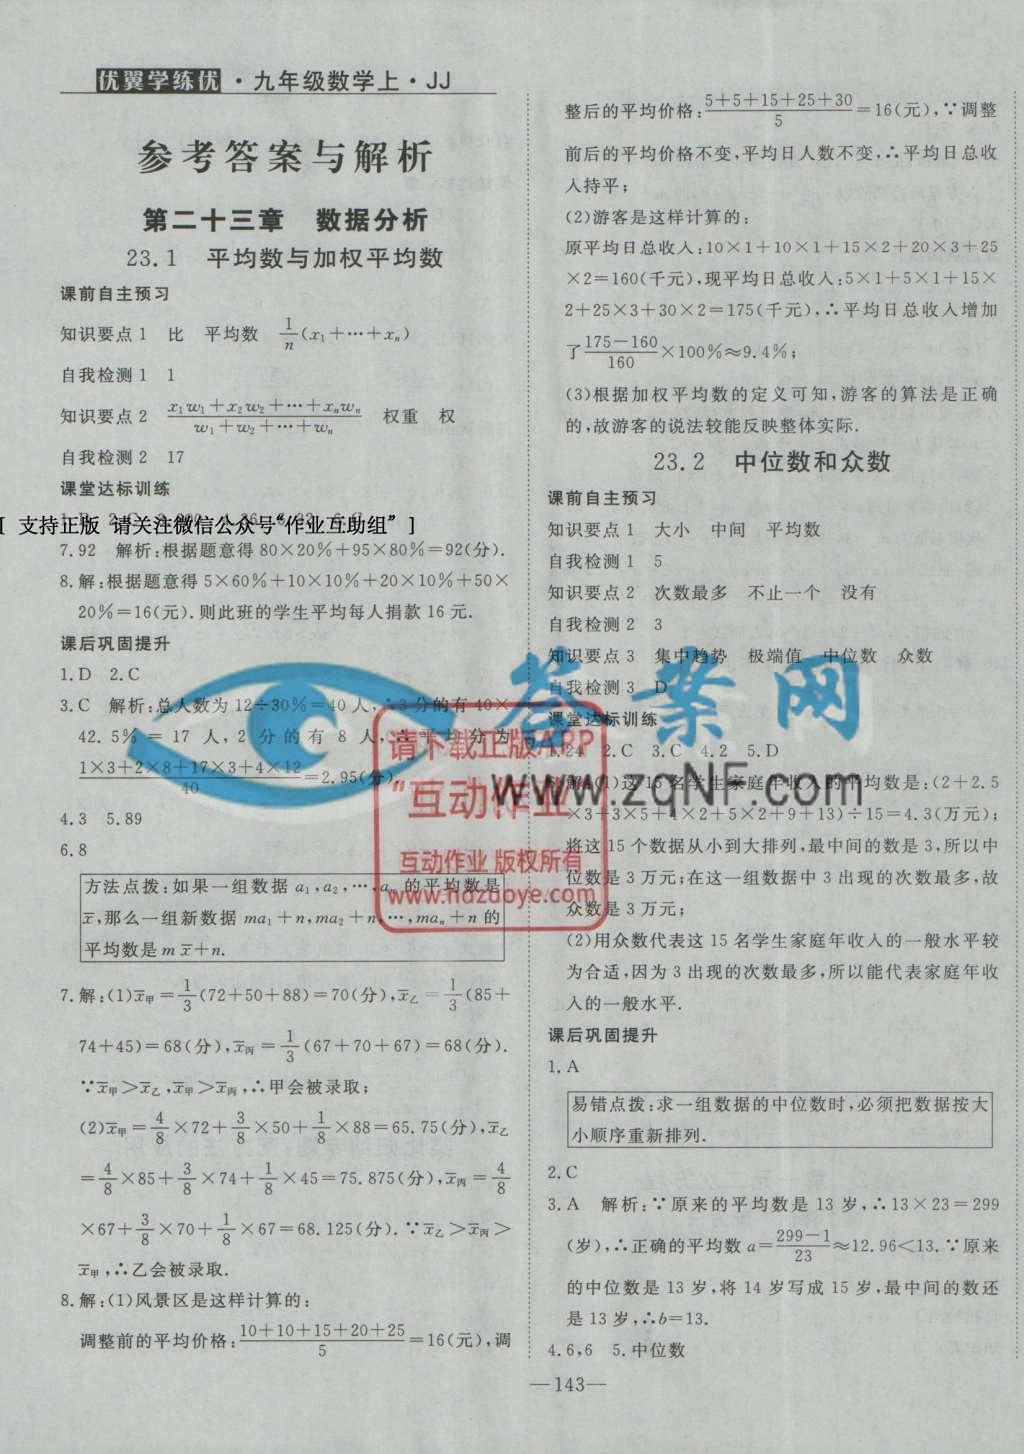 优翼学练优·九年级数学上·JJ
参考答案与解析
第二十三章 数据分析
23.1 平均数与加权平均数
课前自主预习
知识要点1 比 平均数 1/n(x₁+…+xₙ)
自我检测1 1
知识要点2 (x₁w₁+x₂w₂+…+xₙwₙ)/(w₁+w₂+…+wₙ) 权重 权
自我检测2 17
课堂达标训练
[ 支持正版 请关注微信公众号“作业互助组” ]
7.92 解析:根据题意得80×20%+95×80%=92(分).
8.解:根据题意得5×60%+10×10%+20×10%+50×
20%=16(元).则此班的学生平均每人捐款16元.
课后巩固提升
1.D 2.C
3.C 解析:总人数为12÷30%=40人,∴3分的有40×
42.5%=17人,2分的有8人,∴平均分为
(1×3+2×8+17×3+4×12)/40=2.95(分).
4.3 5.89
6.8
方法点拨:如果一组数据a₁,a₂,…,aₙ的平均数是
x̄,那么一组新数据ma₁+n,ma₂+n,…,maₙ+n的
平均数是mx̄+n.
7.解:(1)x̄甲=1/3(72+50+88)=70(分),x̄乙=1/3(85+
74+45)=68(分),x̄丙=1/3(67+70+67)=68(分).
∵x̄甲>x̄乙,x̄甲>x̄丙,∴甲会被录取;
(2)x̄甲=4/8×72+3/8×50+1/8×88=65.75(分),x̄乙
=4/8×85+3/8×74+1/8×45=75.875(分),x̄丙=4/8
×67+3/8×70+1/8×67=68.125(分).∵x̄乙>x̄丙>
x̄甲,∴乙会被录取.
8.解:(1)风景区是这样计算的:
调整前的平均价格:(10+10+15+20+25)/5=16(元),调
整后的平均价格:(5+5+15+25+30)/5=16(元),∵调整
前后的平均价格不变,平均日人数不变,∴平均日总收
入持平;
(2)游客是这样计算的:
原平均日总收入:10×1+10×1+15×2+20×3+25
×2=160(千元),现平均日总收入:5×1+5×1+15×
2+25×3+30×2=175(千元),∴平均日总收入增加
了(175-160)/160×100%≈9.4%;
(3)根据加权平均数的定义可知,游客的算法是正确
的,故游客的说法较能反映整体实际.
23.2 中位数和众数
课前自主预习
知识要点1 大小 中间 平均数
自我检测1 5
知识要点2 次数最多 不止一个 没有
自我检测2 3
知识要点3 集中趋势 极端值 中位数 众数
自我检测3 D
课堂达标训练
1.24 2.C 3.C 4.2 5.D
解:(1)这15名学生家庭年收入的平均数是:(2+2.5
×3+3×5+4×2+5×2+9+13)÷15=4.3(万元);
将这15个数据从小到大排列,最中间的数是3,所以中
位数是3万元;在这一组数据中3出现的次数最多,故
众数是3万元;
(2)用众数代表这15名学生家庭年收入的一般水平较
为合适,因为3出现的次数最多,所以能代表家庭年收
入的一般水平.
课后巩固提升
1.A
易错点拨:求一组数据的中位数时,必须把数据按大
小顺序重新排列.
2.C
3.A 解析:∵原来的平均数是13岁,∴13×23=299
(岁),∴正确的平均数a=(299-1)/23≈12.96<13.∵原来
的中位数是13岁,将14岁写成15岁,最中间的数还
是13岁,∴b=13.
4.6,6 5.中位数
—143—
答案网
www.zqNF.com
请下载正版APP
“互动作业”
互动作业 版权所有
www.hdzuoye.com